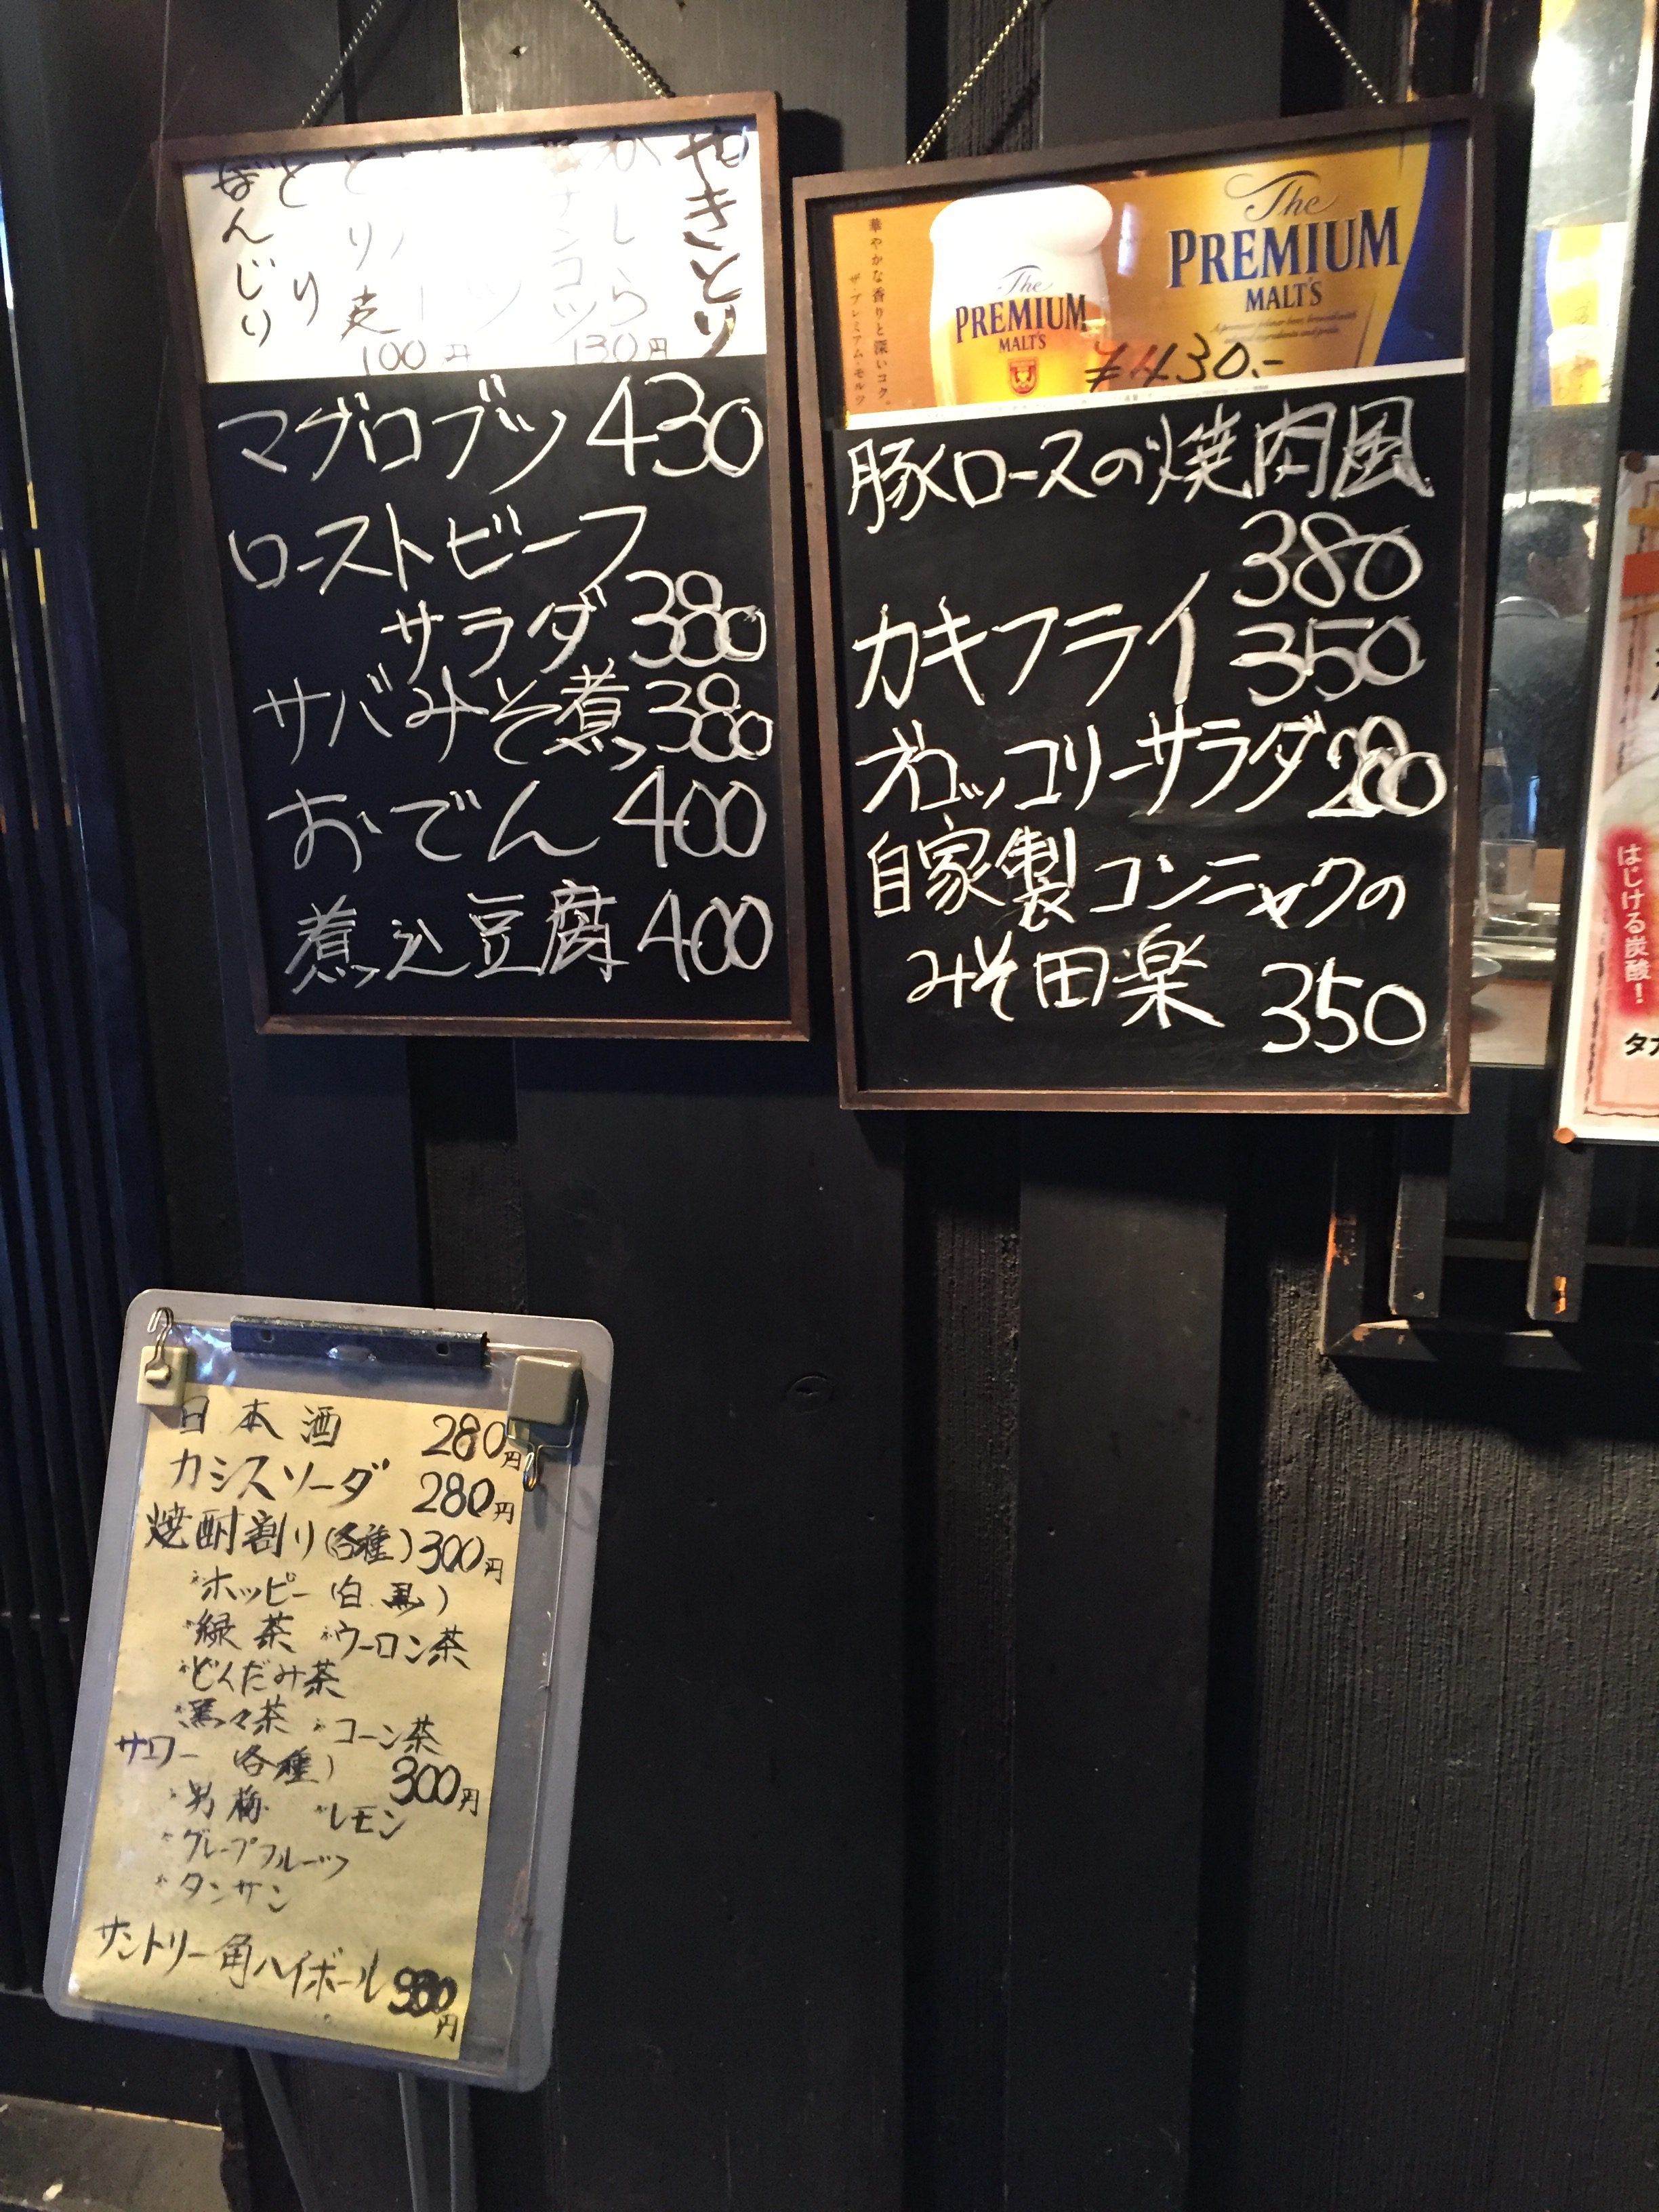 やきとり
かしら
ナンコツ
130円
とり皮
100円
とり
ぼんじり
マグロブツ 430
ローストビーフ
サラダ 380
サバみそ煮 380
おでん 400
煮込豆腐 400
The
PREMIUM
MALT'S
華やかな香りと深いコク。
ザ・プレミアム・モルツ
The
PREMIUM
MALT'S
¥430.-
豚ロースの焼肉風
380
カキフライ 350
ブロッコリーサラダ 280
自家製コンニャクの
みそ田楽 350
はじける炭酸!
日本酒 280円
カシスソーダ 280円
焼酎割り(各種) 300円
ホッピー(白.黒)
緑茶 ウーロン茶
どくだみ茶
黒々茶 コーン茶
サワー(各種) 300円
男梅 レモン
グレープフルーツ
タンサン
サントリー角ハイボール 円